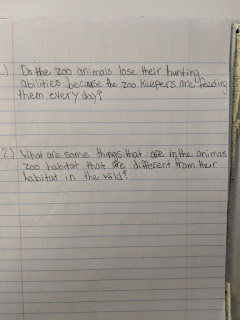 1.) Do the zoo animals lose their hunting
abilities because the zoo keepers are feeding
them every day?
2.) What are some things that are in the animas
zoo habitat that are different from their
habitat in the wild?